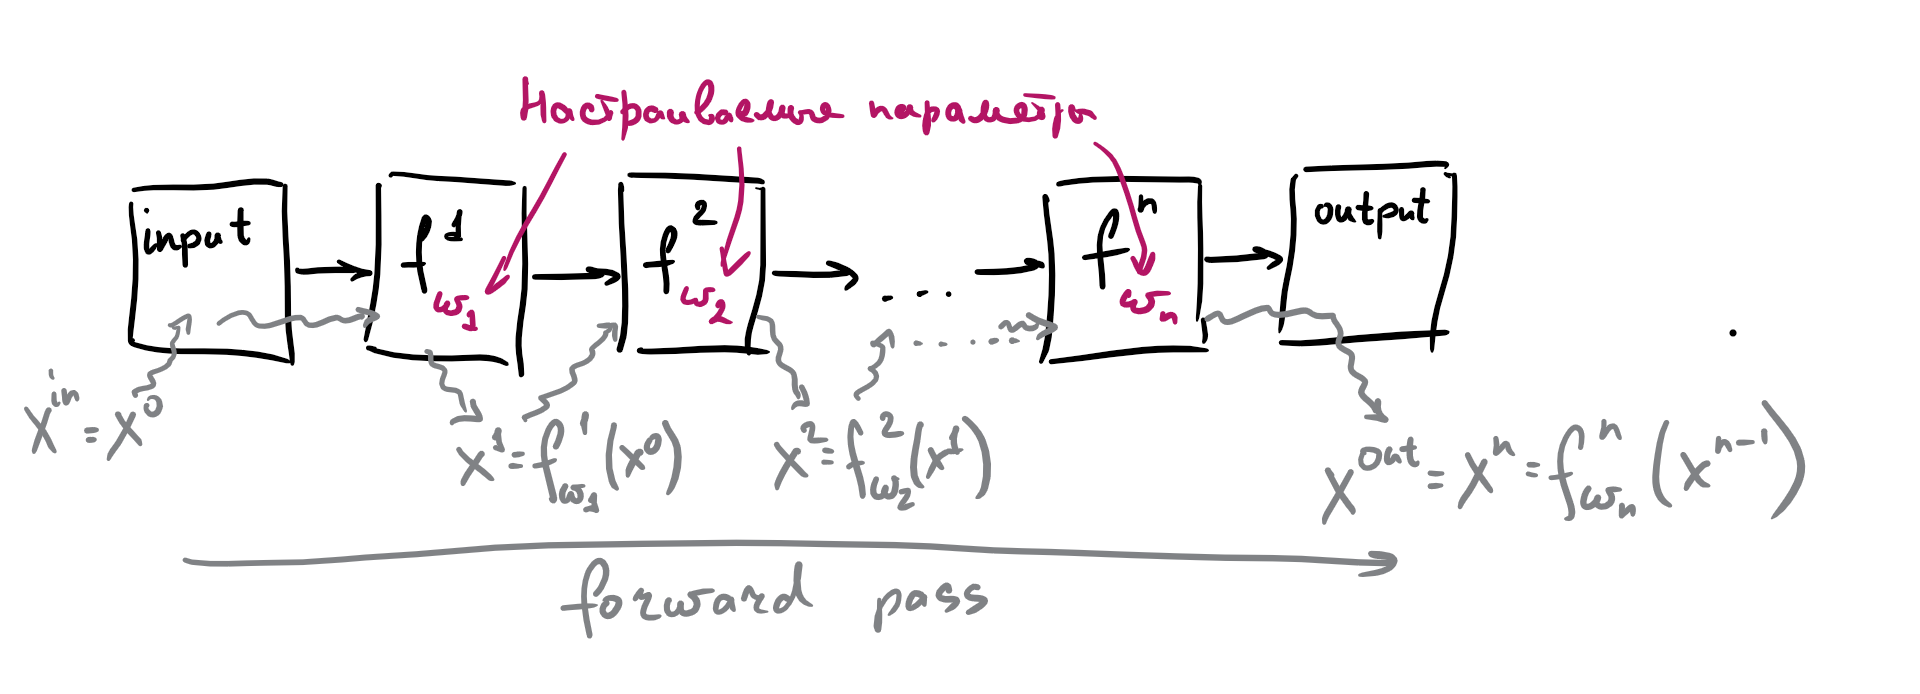 Настраиваемые параметры
input f¹ω₁ f²ω₂ ... fⁿωₙ output
xⁱⁿ = x⁰ x¹ = f¹ω₁(x⁰) x² = f²ω₂(x¹) xᵒᵘᵗ = xⁿ = fⁿωₙ(xⁿ⁻¹)
forward pass